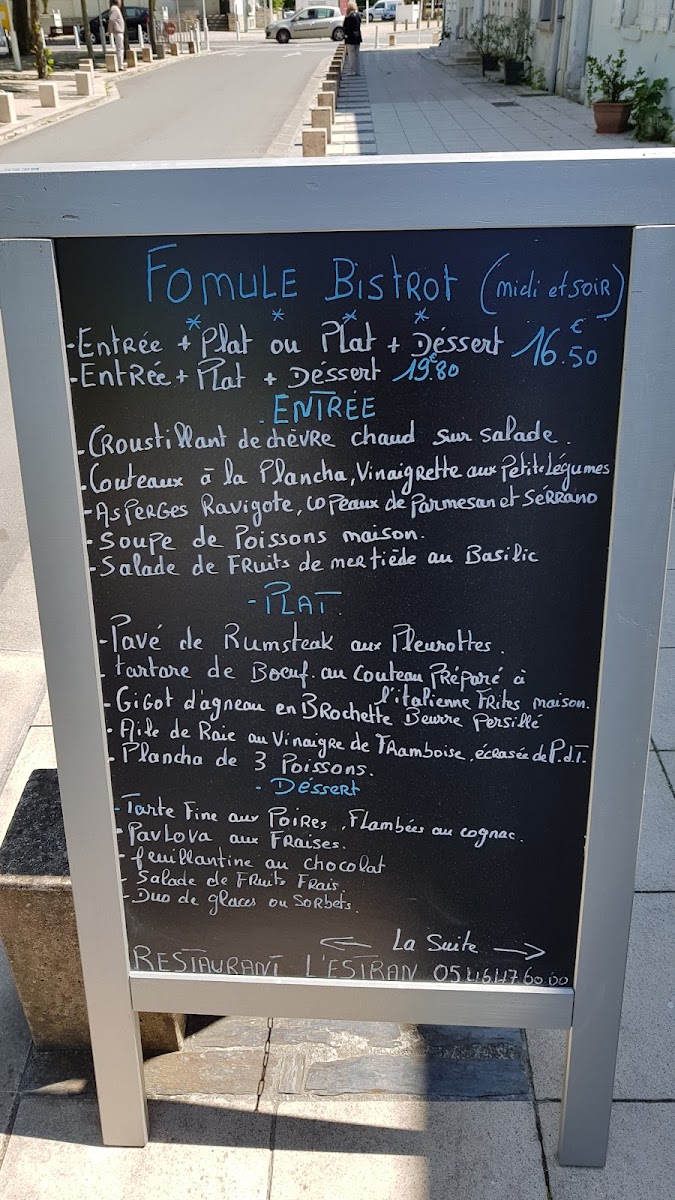 FOMULE BISTROT (midi et SOIR)
* * * *
-ENTRÉE + Plat ou PLat + Déssert 16.50 €
-ENTRÉE + PLat + Déssert 19.80 €
. ENTRÉE
- CROUSTILLANT de chèVRE chaud sur salade.
- Couteaux à la Plancha, Vinaigrette aux Petits Légumes
- ASPERGES Ravigote, coPeaux de Parmesan et SÉRRANO
- Soupe de Poissons maison.
- Salade de FRuits de mer tiède au Basilic
- PLAT.
- Pavé de Rumsteak aux Pleurottes.
- tartare de Boeuf au couteau PRéparé à
l'italienne FRites maison.
- GiGot d'agneau en BRochette Beurre Persillé
- Aile de Raie au Vinaigre de FRamboise, écrasée de P.d.T.
- Plancha de 3 Poissons.
- Déssert
- Tarte Fine aux Poires, Flambées au cognac.
- PavLova aux FRaises.
- feuillantine au chocolat
- Salade de FRuits FRais.
- Duo de glaces ou SorbEts.
← La Suite →
RESTAURANT L'ESTRAN 05 46 47 60 00